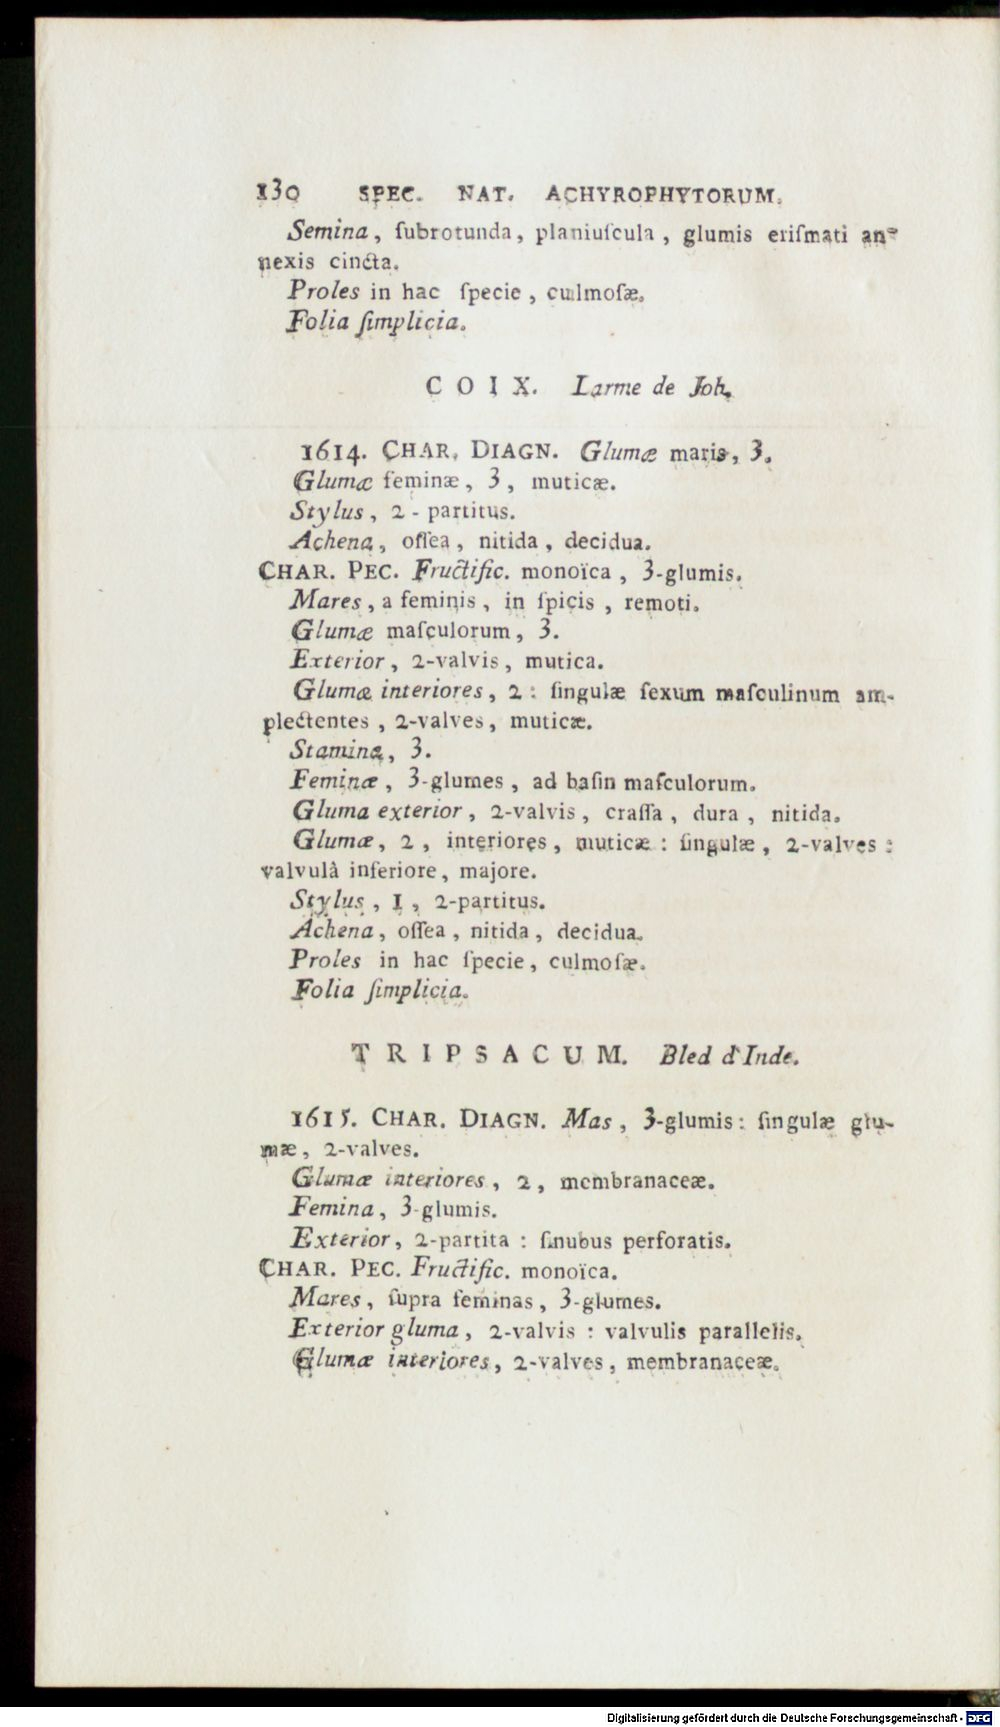 130 SPEC. NAT. ACHYROPHYTORUM.
Semina, ſubrotunda, planiuſcula, glumis eriſmati an-
nexis cincta.
Proles in hac ſpecie, culmoſæ.
Folia ſimplicia.
COIX. Larme de Job.
1614. CHAR. DIAGN. Glumæ maris, 3.
Glumæ feminæ, 3, muticæ.
Stylus, 2-partitus.
Achena, oſſea, nitida, decidua.
CHAR. PEC. Fructific. monoïca, 3-glumis.
Mares, a feminis, in ſpicis, remoti.
Glumæ maſculorum, 3.
Exterior, 2-valvis, mutica.
Glumæ interiores, 2 : ſingulæ ſexum maſculinum am-
plectentes, 2-valves, muticæ.
Stamina, 3.
Feminæ, 3-glumes, ad baſin maſculorum.
Gluma exterior, 2-valvis, craſſa, dura, nitida.
Glumæ, 2, interiores, muticæ : ſingulæ, 2-valves :
valvulâ inferiore, majore.
Stylus, 1, 2-partitus.
Achena, oſſea, nitida, decidua.
Proles in hac ſpecie, culmoſæ.
Folia ſimplicia.
TRIPSACUM. Bled d'Inde.
1615. CHAR. DIAGN. Mas, 3-glumis : ſingulæ glu-
mæ, 2-valves.
Glumæ interiores, 2, membranaceæ.
Femina, 3-glumis.
Exterior, 2-partita : ſinubus perforatis.
CHAR. PEC. Fructific. monoïca.
Mares, ſupra feminas, 3-glumes.
Exterior gluma, 2-valvis : valvulis parallelis.
Glumæ interiores, 2-valves, membranaceæ.
Digitalisierung gefördert durch die Deutsche Forschungsgemeinschaft - DFG